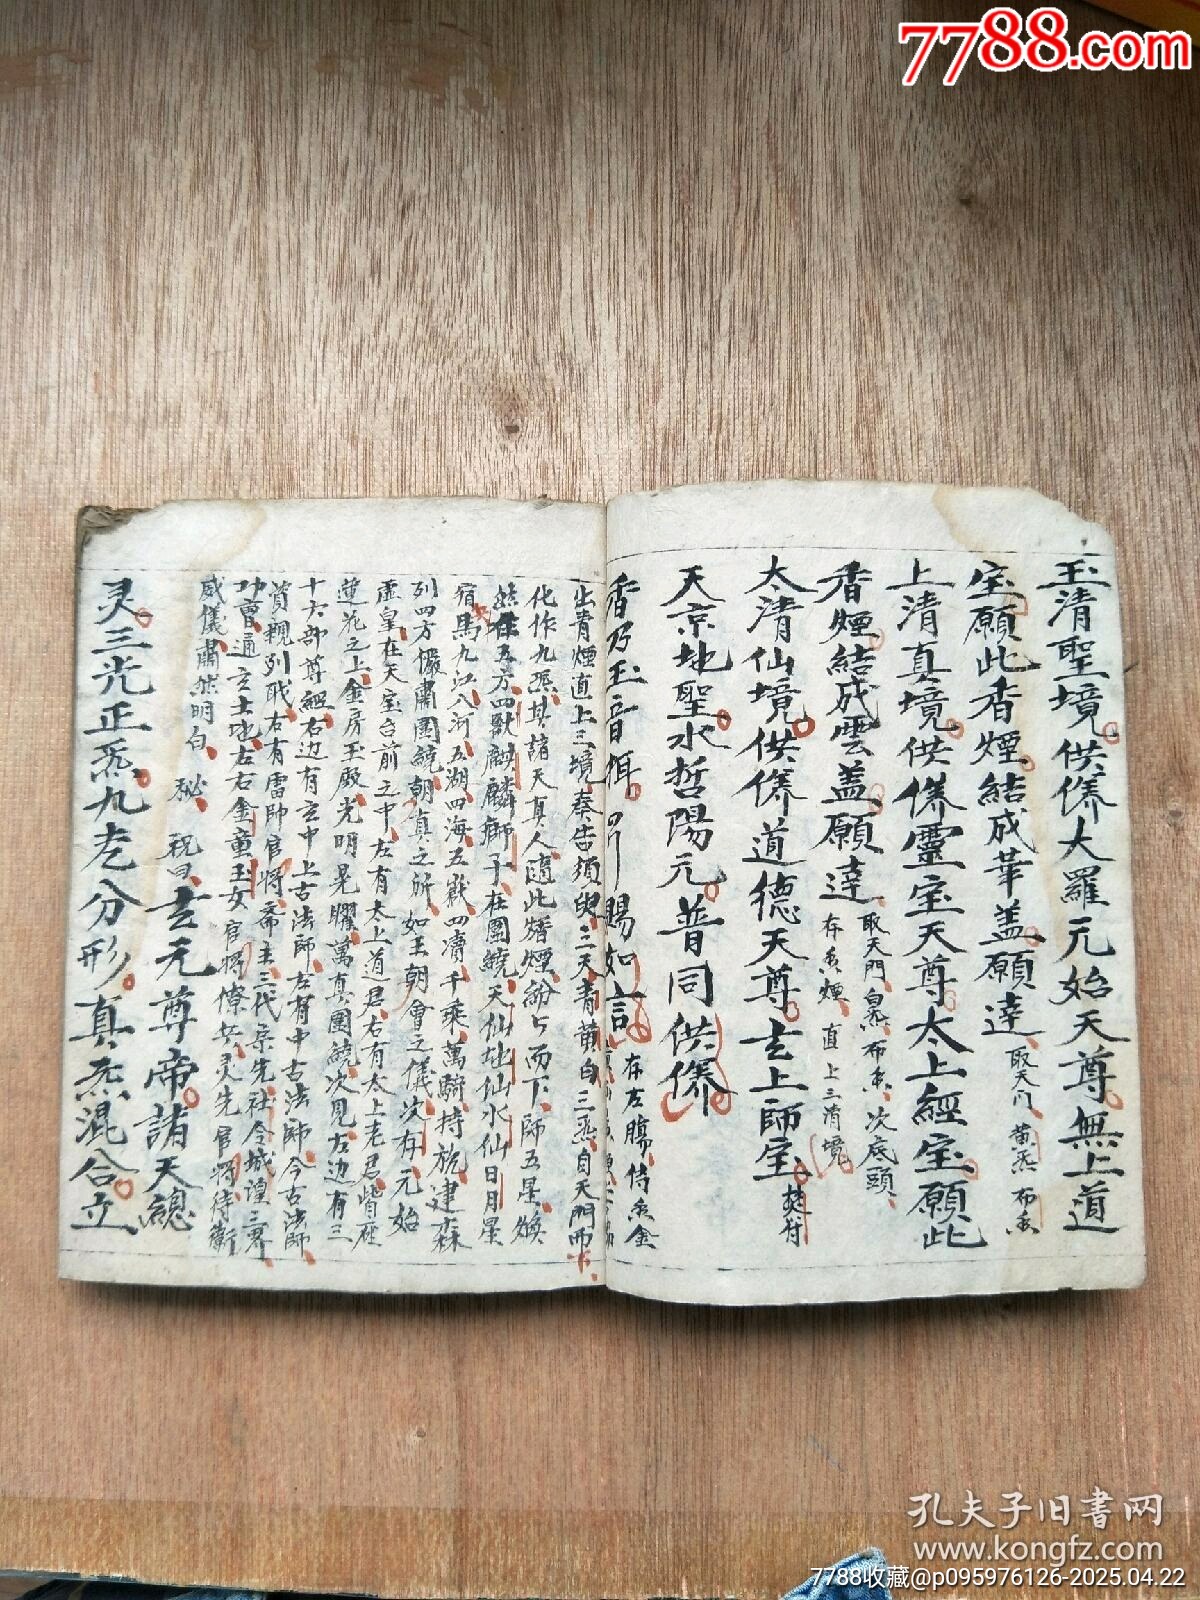 7788.com
玉清聖境供养大羅元始天尊無上道
宝願此香煙結成華盖願達取天门黄炁布香
上清真境供养靈宝天尊太上經宝願此
香煙結成雲盖願達取天門白炁布香次底頭
存香煙直上三清境
太清仙境供养道德天尊玄上師宝焚符
天京地聖水哲陽元普同供养
香乃玉音賜如言存左腸侍香金
出青煙直上三境奏告須臾三天青黄白三炁自天門而下
化作九炁其諸天真人随此皤煙紛紛而下師五星煥
五方四獸麒麟獅子在圍繞天仙地仙水仙日月星
宿馬九江八河五湖四海五嶽四瀆千乘萬騎持旄建森
列四方儼肅圍繞朝真之所如王朝會之儀次存元始
虛皇在天宝台前之中左有太上道君右有太上老君皆座
蓮花之上金房玉殿光明晃曜萬真圍繞次見左边有三
十六部尊經右边有玄中上古法師左有中古法師今古法師
質親列职右有雷師官将斋主三代宗先社令城湟三界
功曹通玄土地左右金童玉女官将僚兵灵先官将侍衛
威儀肅然明白秘
祝曰玄元尊帝諸天總
灵三光正炁九老分形真炁混合立
孔夫子旧书网
www.kongfz.com
7788收藏@p095976126-2025.04.22